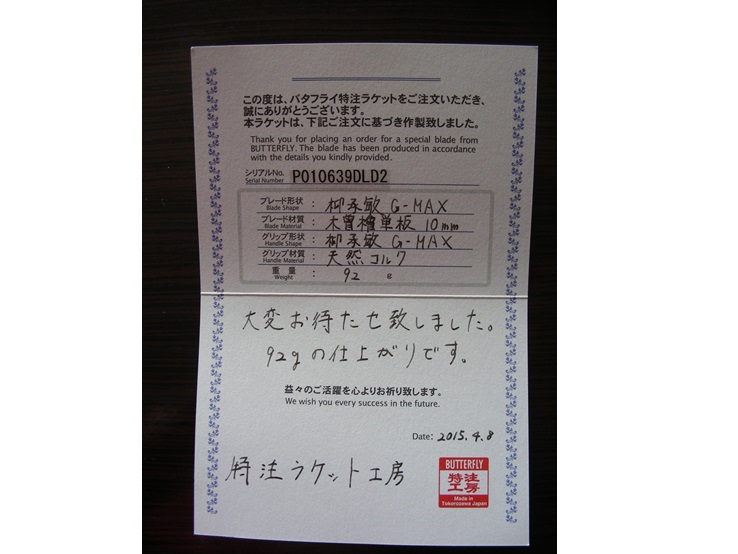 この度は、バタフライ特注ラケットをご注文いただき、
誠にありがとうございます。
本ラケットは、下記ご注文に基づき作製致しました。
Thank you for placing an order for a special blade from
BUTTERFLY. The blade has been produced in accordance
with the details you kindly provided.
シリアルNo.
Serial Number
P010639DLD2
ブレード形状 : 柳承敏 G-MAX
Blade Shape
ブレード材質 : 木曽檜単板 10mm
Blade Material
グリップ形状 : 柳承敏 G-MAX
Handle Shape
グリップ材質 : 天然コルク
Handle Material
重量 : 92 g
Weight
大変お待たせ致しました。
92gの仕上がりです。
益々のご活躍を心よりお祈り致します。
We wish you every success in the future.
Date: 2015.4.8
特注ラケット工房
BUTTERFLY
特注
工房
Made in
Tokorozawa Japan